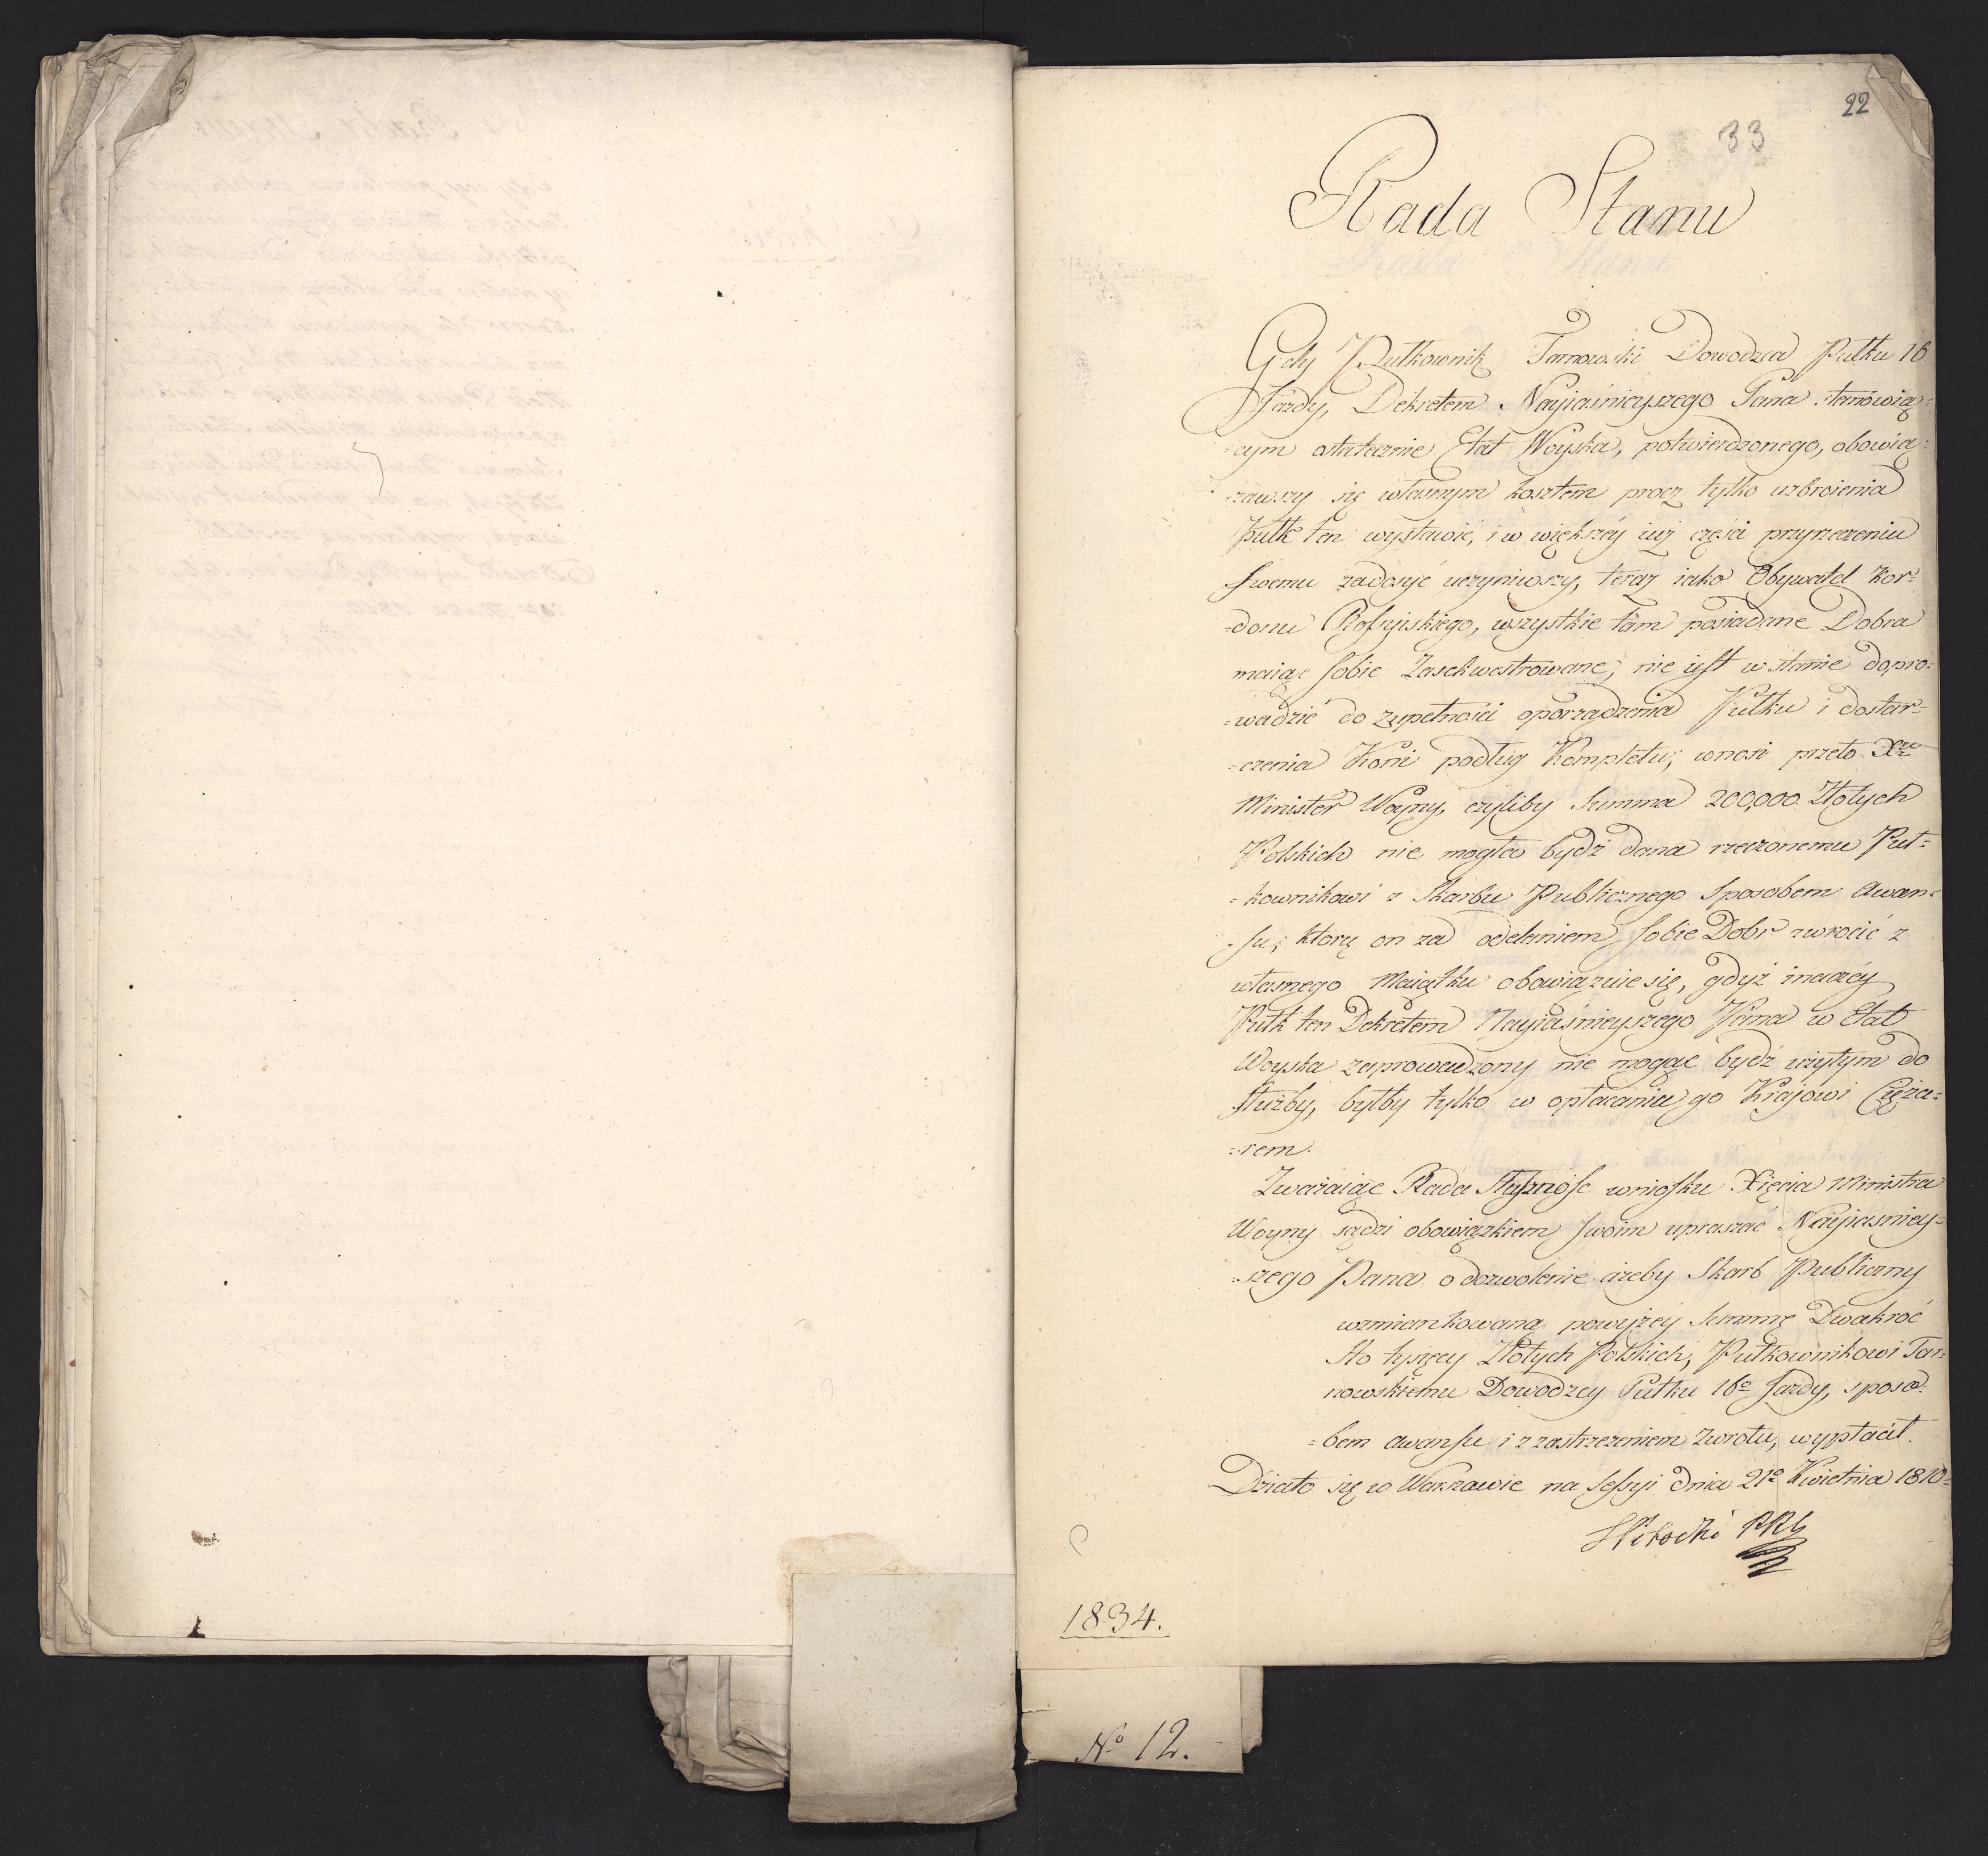 22
33
Rada Stanu
Gdy Pułkownik Tarnowski Dowodzca Pułku 16
Jazdy, Dekretem Nayiaśnieyszego Pana stanowią=
=cym ostatecznie Etat Woyska, potwierdzonego, obowią=
=zawszy się własnym kosztem procz tylko uzbroienia
Pułk ten wystawić, i w większéy iuż części przyrzeczeniu
swemu zadosyć uczyniwszy, teraz iako Obywatel Kor=
=donu Rossyiskiego, wszystkie tam posiadane Dobra
maiąc sobie Zasekwestrowane, nie iest w stanie dopro=
=wadzić do zupełności oporządzenia Pułku i dostar=
=czenia Koni podług Kompletu; wnosi przeto Xże
Minister Woyny, czyliby Summa 200,000 Złotych
Polskich nie mogła bydź dana rzeczonemu Puł=
=kownikowi z Skarbu Publicznego Sposobem Awan=
=su; którą on za oddaniem sobie Dobr zwrocić z
własnego Maiątku obowiązuie się, gdyż inaczéy
Pułk ten Dekretem Nayiaśnieyszego Pana w Etat
Woyska zaprowadzony nie mogąc bydź użytym do
służby, byłby tylko w opłacaniu go Krajowi Cięża=
=rem.
Zważaiąc Rada słuszność wniosku Xięcia Ministra
Woyny sądzi obowiązkiem swoim upraszać Nayiasniey=
=szego Pana o dozwolenie ażeby Skarb Publiczny
wzmiankowaną powyżéy Summę Dwakroć
sto tysięcy Złotych Polskich, Pułkownikowi Tar=
nowskiemu Dowodzcy Pułku 16º Jazdy, sposo=
=bem awansu i z zastrzeżeniem zwrotu, wypłacił.
Działo się w Warszawie na Sessyi dnia 21º Kwietnia 1810=
1834.
Nº 12.